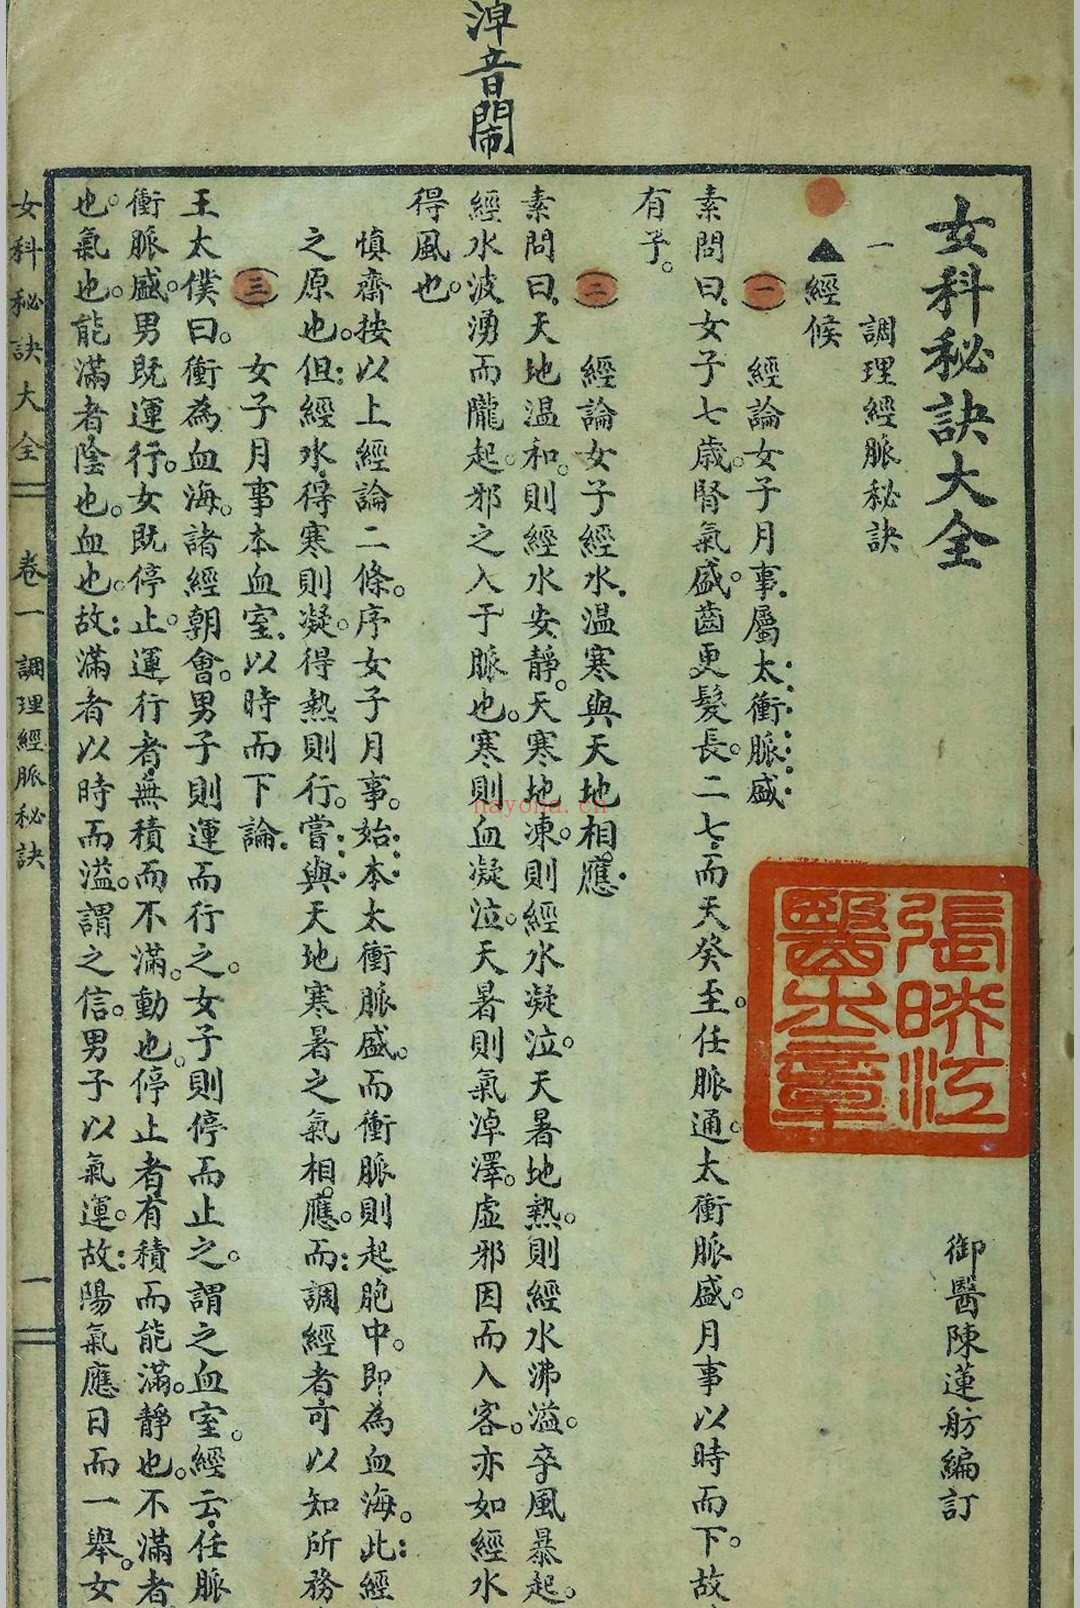 淖音鬧
女科秘訣大全
御醫陳蓮舫編訂
張映江
醫士章
一 調理經脈秘訣
▲經候
(一) 經論女子月事屬太衝脈盛
素問曰女子七歲。腎氣盛。齒更髮長。二七而天癸至。任脈通。太衝脈盛。月事以時而下。故
有子。
(二) 經論女子經水温寒與天地相應
素問曰天地温和。則經水安靜。天寒地凍。則經水凝泣。天暑地熱。則經水沸溢。卒風暴起。
經水波湧而隴起。邪之入于脈也。寒則血凝泣。天暑則氣淖澤。虛邪因而入客。亦如經水
得風也。
慎齋按以上經論二條。序女子月事。始本太衝脈盛。而衝脈則起胞中。即為血海。此經
之原也。但經水得寒則凝。得熱則行。嘗與天地寒暑之氣相應。而調經者可以知所務
(三) 女子月事本血室以時而下論
王太僕曰。衝為血海。諸經朝會。男子則運而行之。女子則停而止之。謂之血室。經云任脈
衝脈盛。男既運行。女既停止。運行者無積而不滿。動也。停止者有積而能滿。靜也。不滿者
也。氣也。能滿者陰也。血也。故滿者以時而溢。謂之信。男子以氣運。故陽氣應日而一舉。女
女科秘訣大全 卷一 調理經脈秘訣 一
nayona.cn